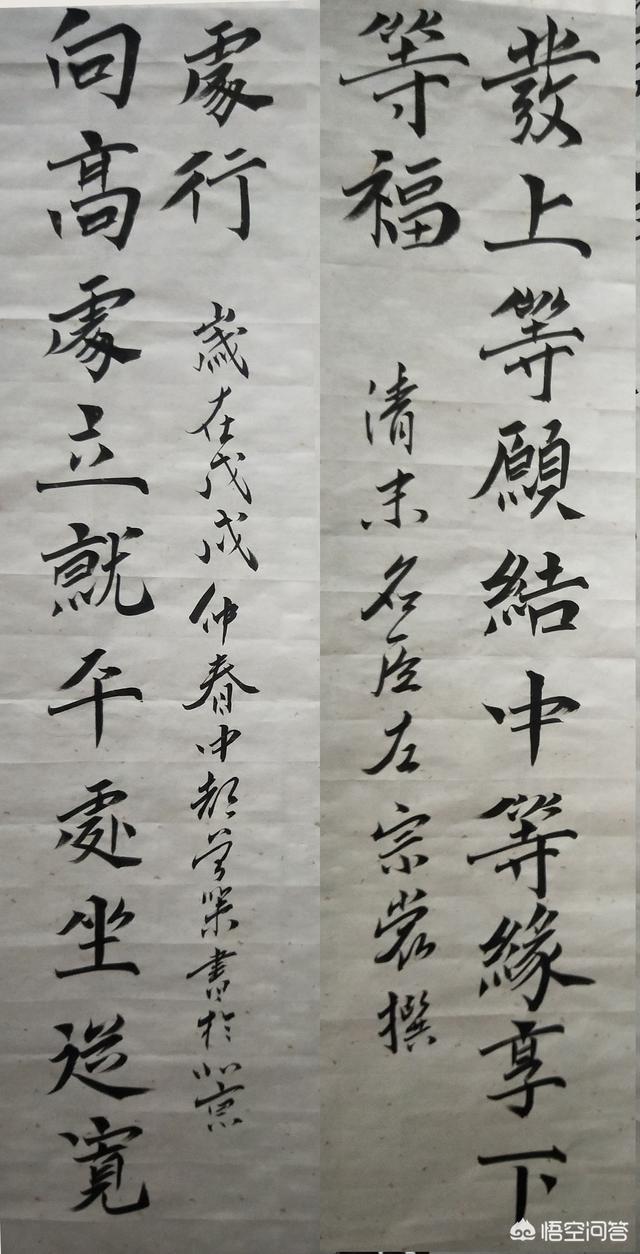 發上等願結中等緣享下
等福
清末名臣左宗裳撰
向高處立就平處坐從寬
處行
歲在戊戌仲春中都書於北京
悟空问答